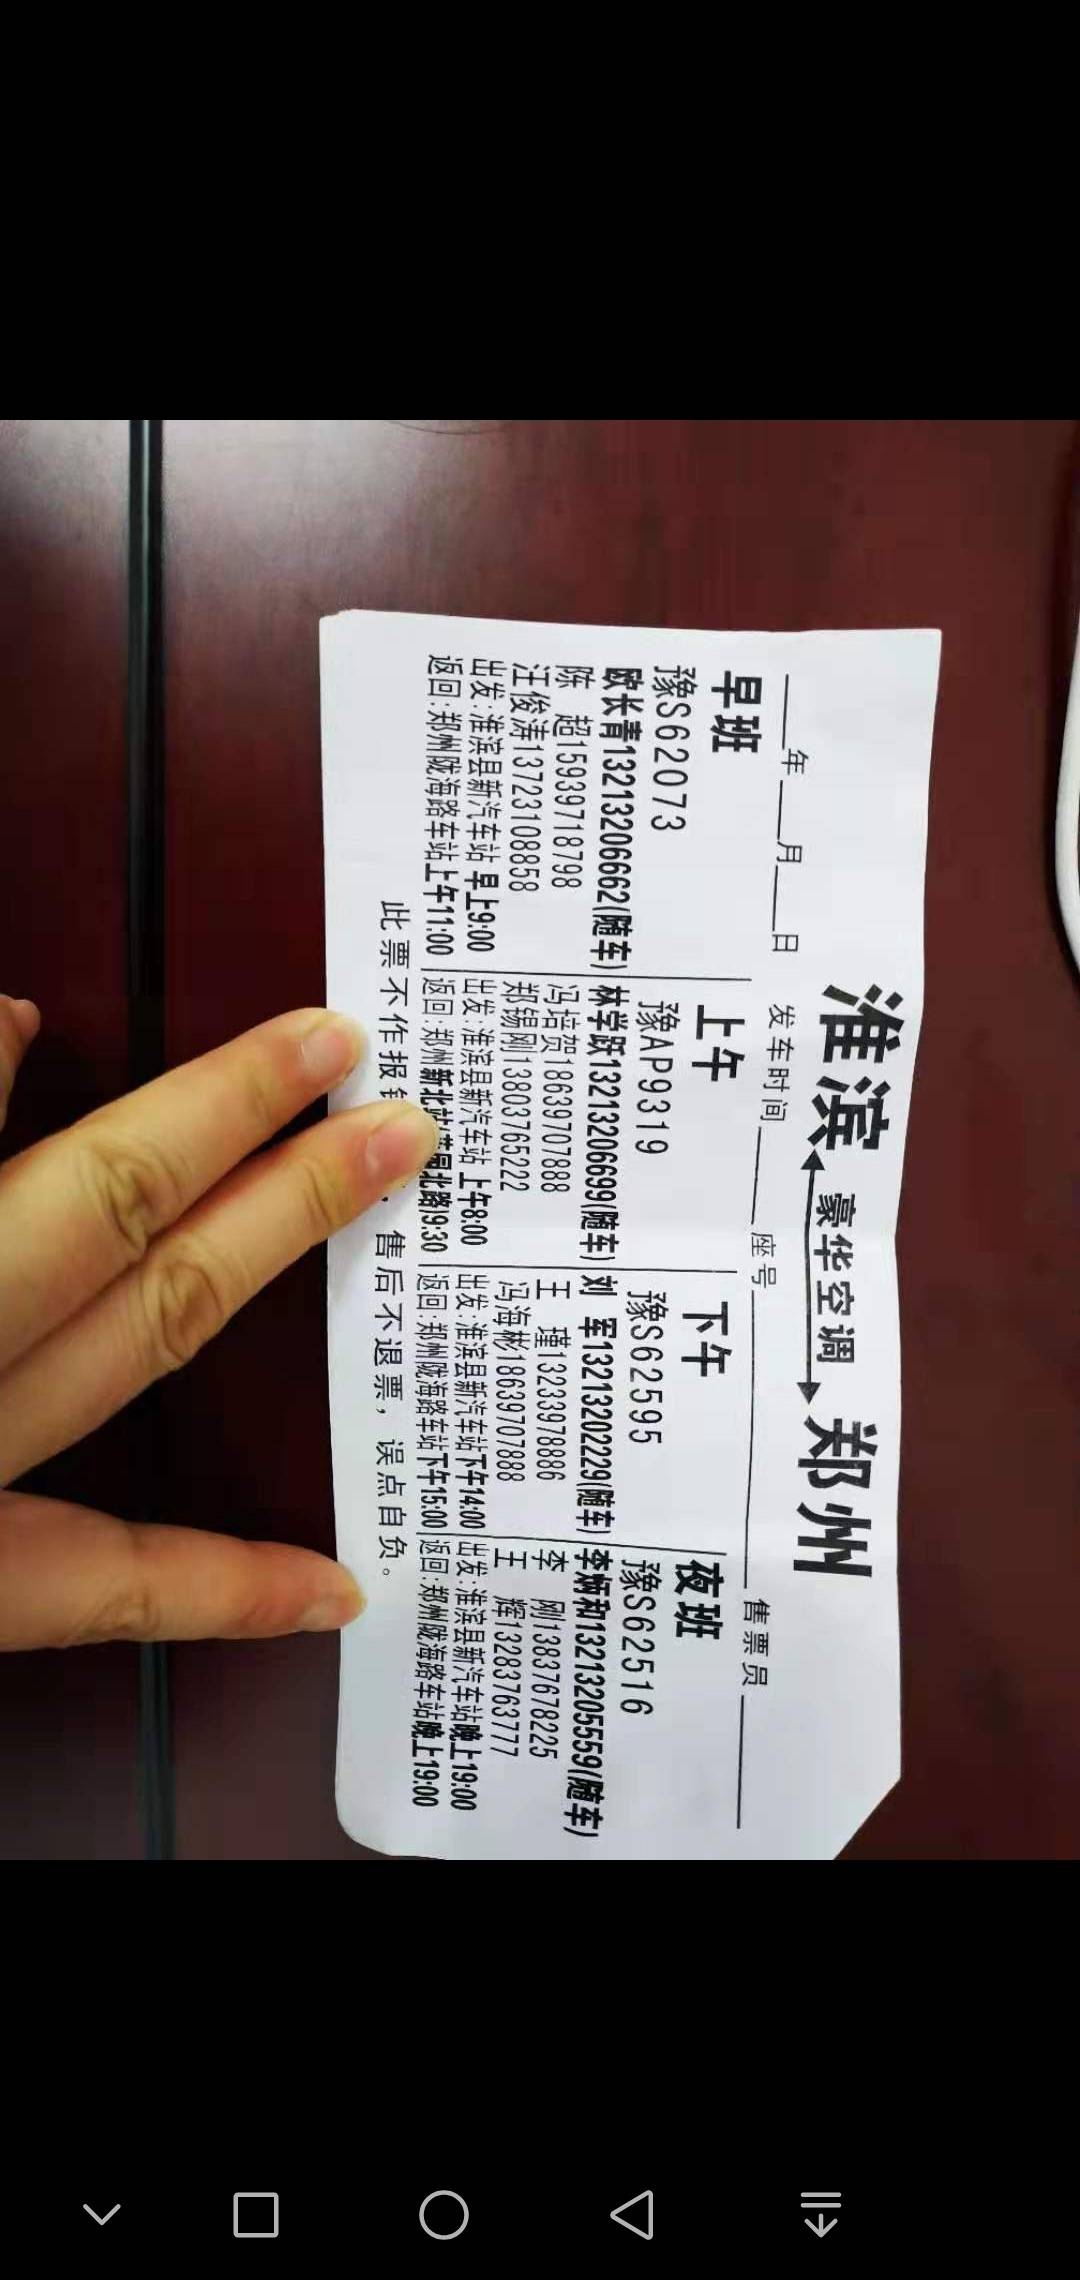 淮滨 豪华空调 郑州
年 月 日 发车时间 座号 售票员
早班
豫S62073
欧长青13213206662(随车)
陈 超15939718798
汪俊涛13723108858
出发:淮滨县新汽车站 早上9:00
返回:郑州陇海路车站上午11:00
上午
豫AP9319
林学跃13213206699(随车)
冯培贺18639707888
郑锡刚13803765222
出发:淮滨县新汽车站 上午8:00
返回:郑州新北站 北路)9:30
下午
豫S62595
刘 军13213202229(随车)
王 瑾13233978886
冯海彬18639707888
出发:淮滨县新汽车站下午14:00
返回:郑州陇海路车站下午15:00
夜班
豫S62516
李炳和13213205559(随车)
李 刚13837678225
王 辉13283763777
出发:淮滨县新汽车站晚上19:00
返回:郑州陇海路车站晚上19:00
此票不作报 售后不退票，误点自负。